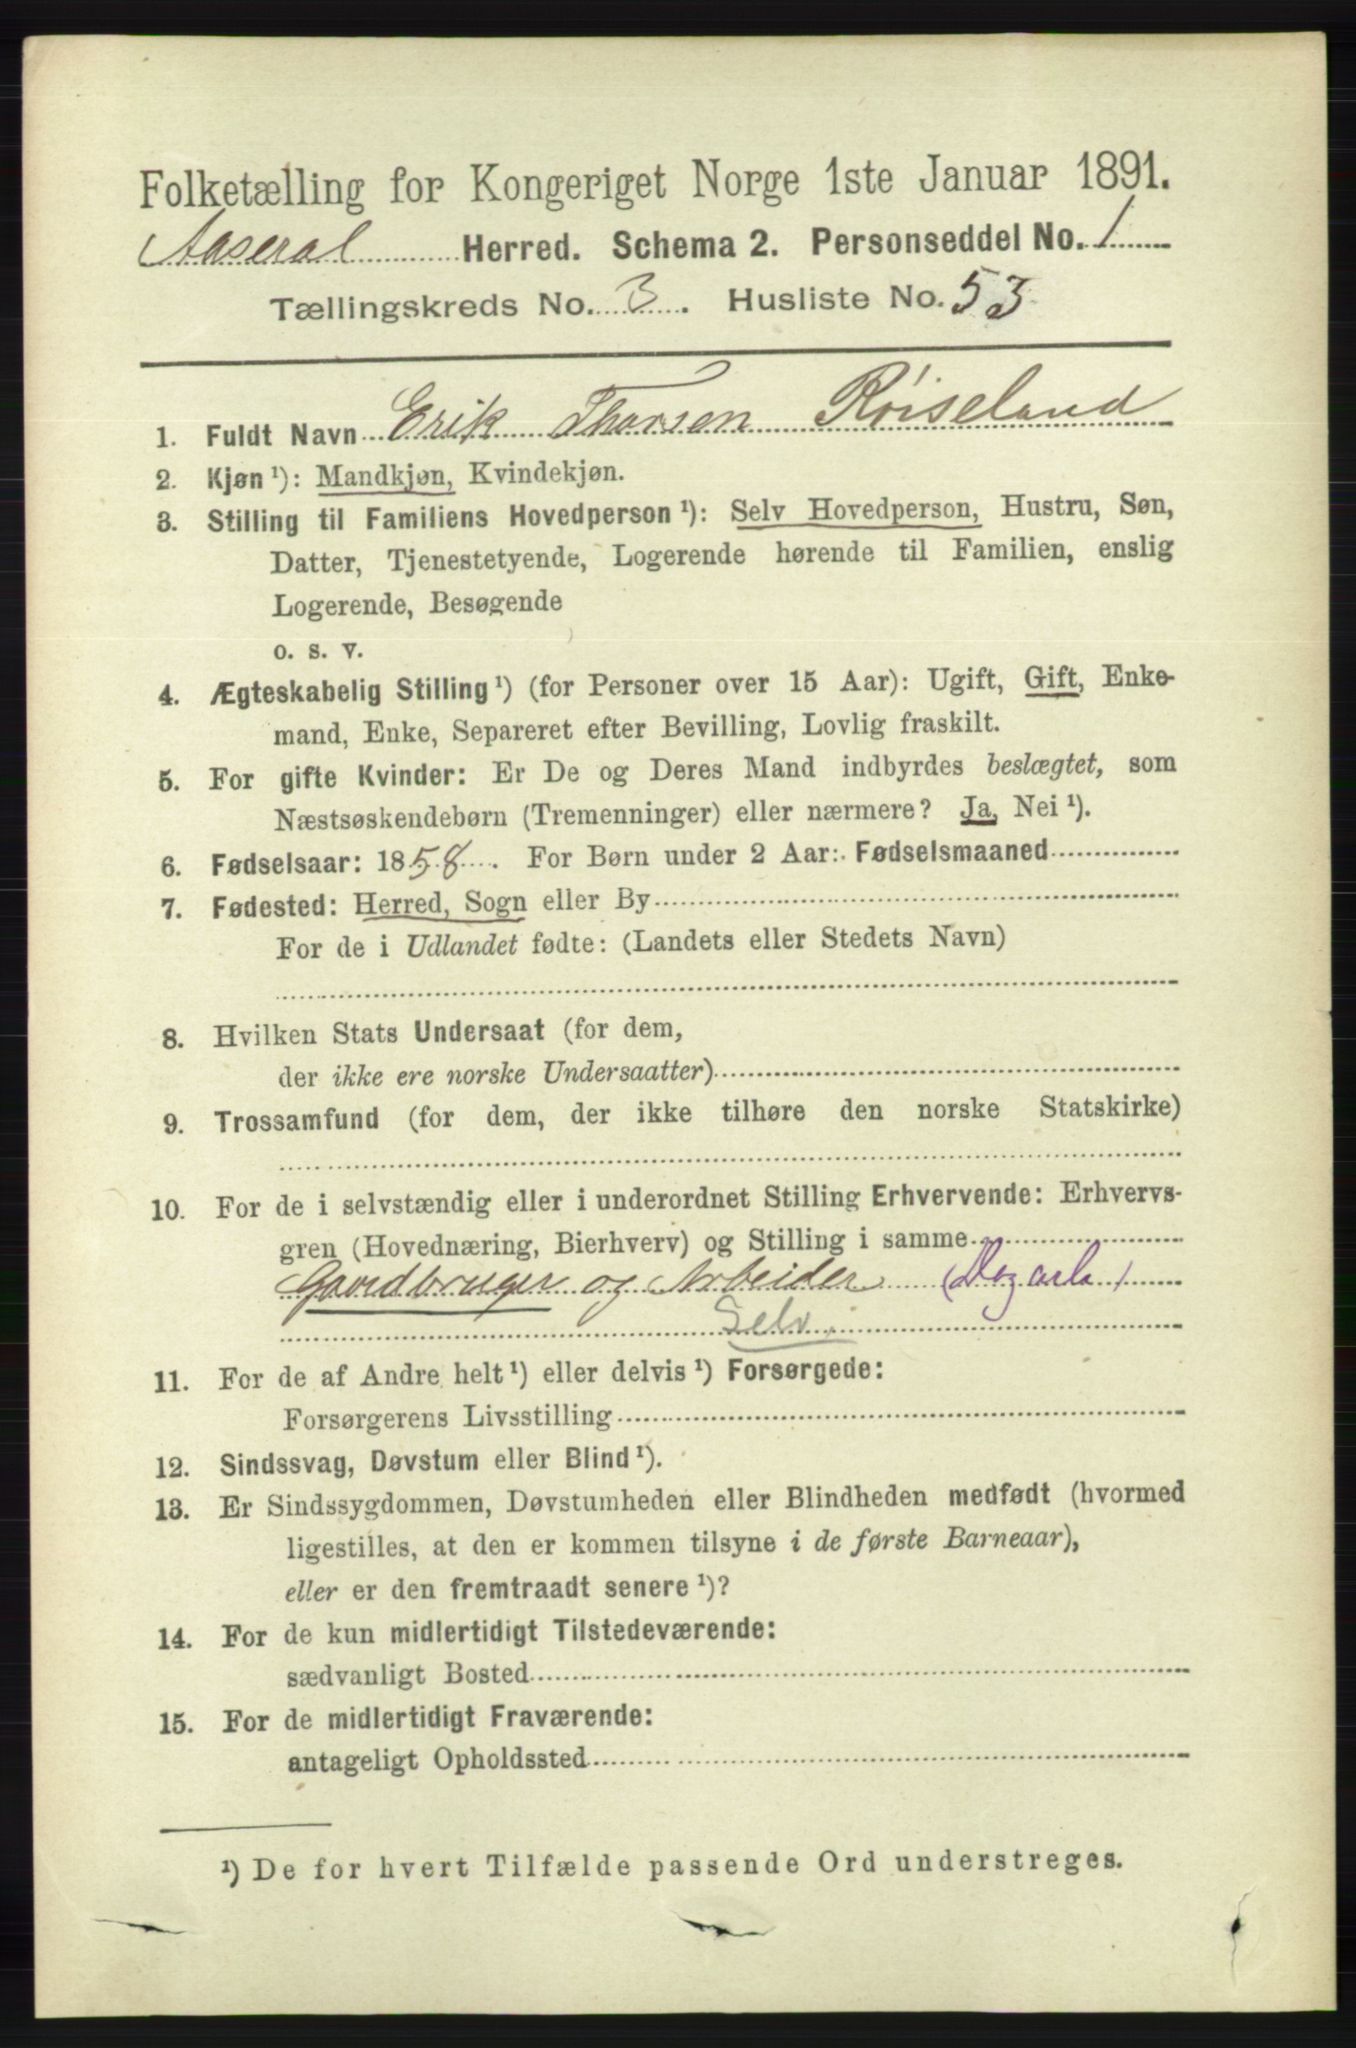 Folketælling for Kongeriget Norge 1ste Januar 1891.
Aaseral Herred. Schema 2. Personseddel No. 1
Tællingskreds No. 3. Husliste No. 53
1. Fuldt Navn Erik Thorsen Röiseland
2. Kjøn ¹): Mandkjøn, Kvindekjøn.
3. Stilling til Familiens Hovedperson ¹): Selv Hovedperson, Hustru, Søn,
Datter, Tjenestetyende, Logerende hørende til Familien, enslig
Logerende, Besøgende
o. s. v.
4. Ægteskabelig Stilling ¹) (for Personer over 15 Aar): Ugift, Gift, Enke-
mand, Enke, Separeret efter Bevilling, Lovlig fraskilt.
5. For gifte Kvinder: Er De og Deres Mand indbyrdes beslægtet, som
Næstsøskendebørn (Tremenninger) eller nærmere? Ja, Nei ¹).
6. Fødselsaar: 1858. For Børn under 2 Aar: Fødselsmaaned
7. Fødested: Herred, Sogn eller By
For de i Udlandet fødte: (Landets eller Stedets Navn)
8. Hvilken Stats Undersaat (for dem,
der ikke ere norske Undersaatter)
9. Trossamfund (for dem, der ikke tilhøre den norske Statskirke)
10. For de i selvstændig eller i underordnet Stilling Erhvervende: Erhvervs-
gren (Hovednæring, Bierhverv) og Stilling i samme
Gaardbruger og Arbeider
Selv.
11. For de af Andre helt ¹) eller delvis ¹) Forsørgede:
Forsørgerens Livsstilling
12. Sindssvag, Døvstum eller Blind ¹).
13. Er Sindssygdommen, Døvstumheden eller Blindheden medfødt (hvormed
ligestilles, at den er kommen tilsyne i de første Barneaar),
eller er den fremtraadt senere ¹)?
14. For de kun midlertidigt Tilstedeværende:
sædvanligt Bosted
15. For de midlertidigt Fraværende:
antageligt Opholdssted
¹) De for hvert Tilfælde passende Ord understreges.